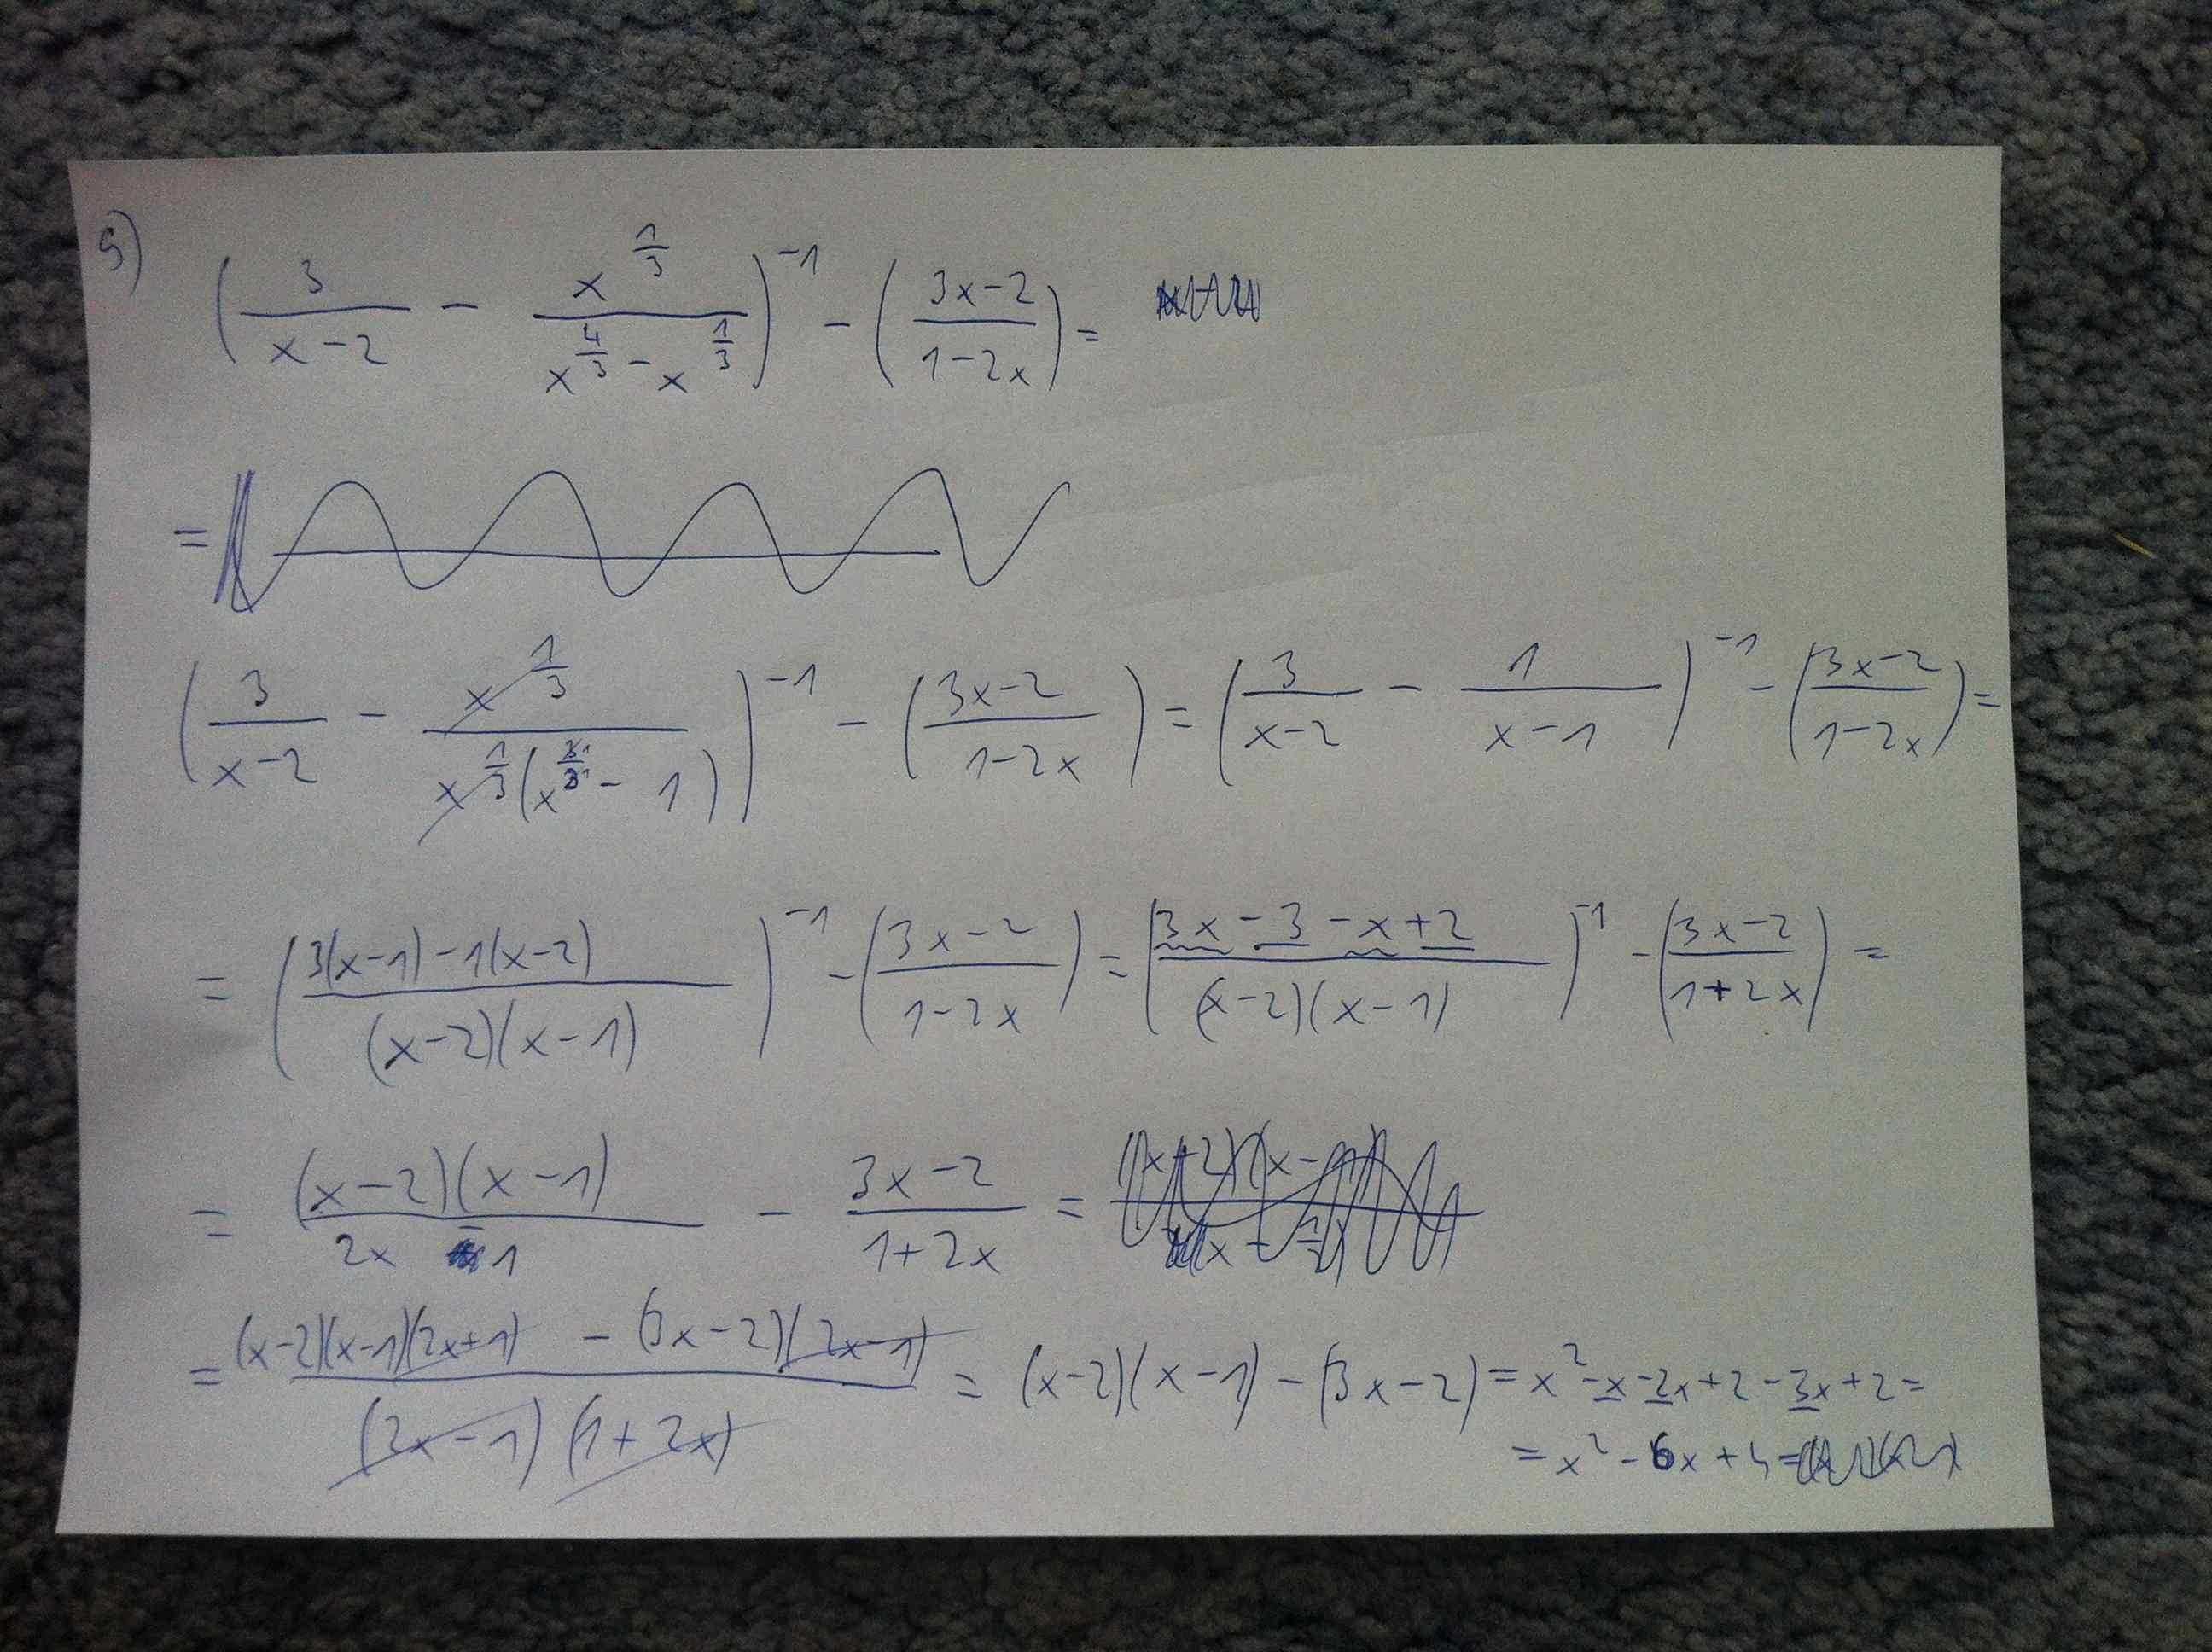 9)
(3/(x-2) - x^(1/3)/(x^(4/3) - x^(1/3)))^-1 - ((3x-2)/(1-2x)) =
=
(3/(x-2) - x^(1/3)/(x^(1/3)(x^(3/3) - 1)))^-1 - ((3x-2)/(1-2x)) = (3/(x-2) - 1/(x-1))^-1 - ((3x-2)/(1-2x)) =
= ((3(x-1)-1(x-2))/((x-2)(x-1)))^-1 - ((3x-2)/(1-2x)) = ((3x-3-x+2)/((x-2)(x-1)))^-1 - ((3x-2)/(1+2x)) =
= ((x-2)(x-1))/(2x-1) - (3x-2)/(1+2x) =
= ((x-2)(x-1)(2x+1) - (3x-2)(2x-1))/((2x-1)(1+2x)) = (x-2)(x-1) - (3x-2) = x^2-x-2x+2-3x+2 =
= x^2-6x+4 =